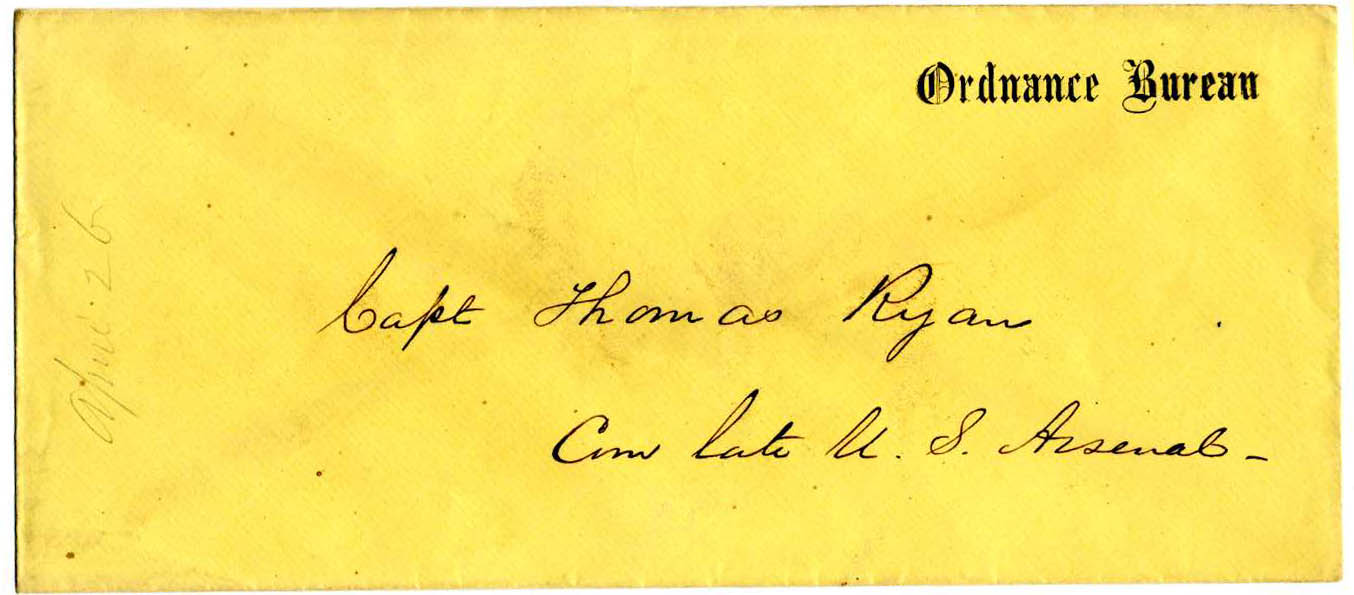 Ordnance Bureau
Capt Thomas Ryan
Com late U. S. Arsenal -
April 26